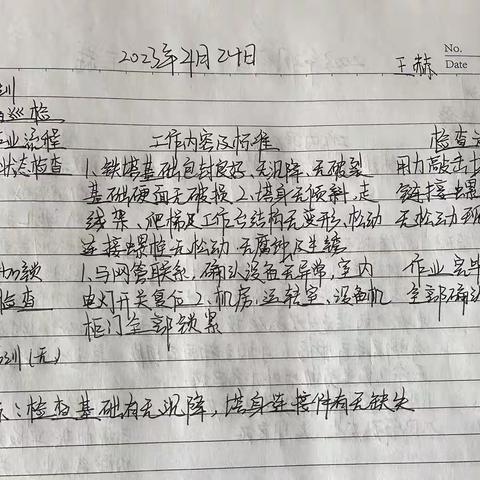 No.
2023年4月24日
王赫
Date
训
巡检
业流程 工作内容及标准 检查
状态检查 1、铁塔基础包封良好、无沉降、无破裂 用力敲击
基础硬面无破损 2、塔身无倾斜、走 链接螺
线架、爬梯及工作台结构无变形、松动 无松动到
连接螺栓无松动、无腐蚀及生锈
加锁 1、与网管联系,确认设备无异常,室内 作业完毕
检查 电灯开关复位 2、机房、运转室、设备机 全部确认
柜门全部锁紧
训(无)
:检查基础有无沉降,塔身连接件有无缺失